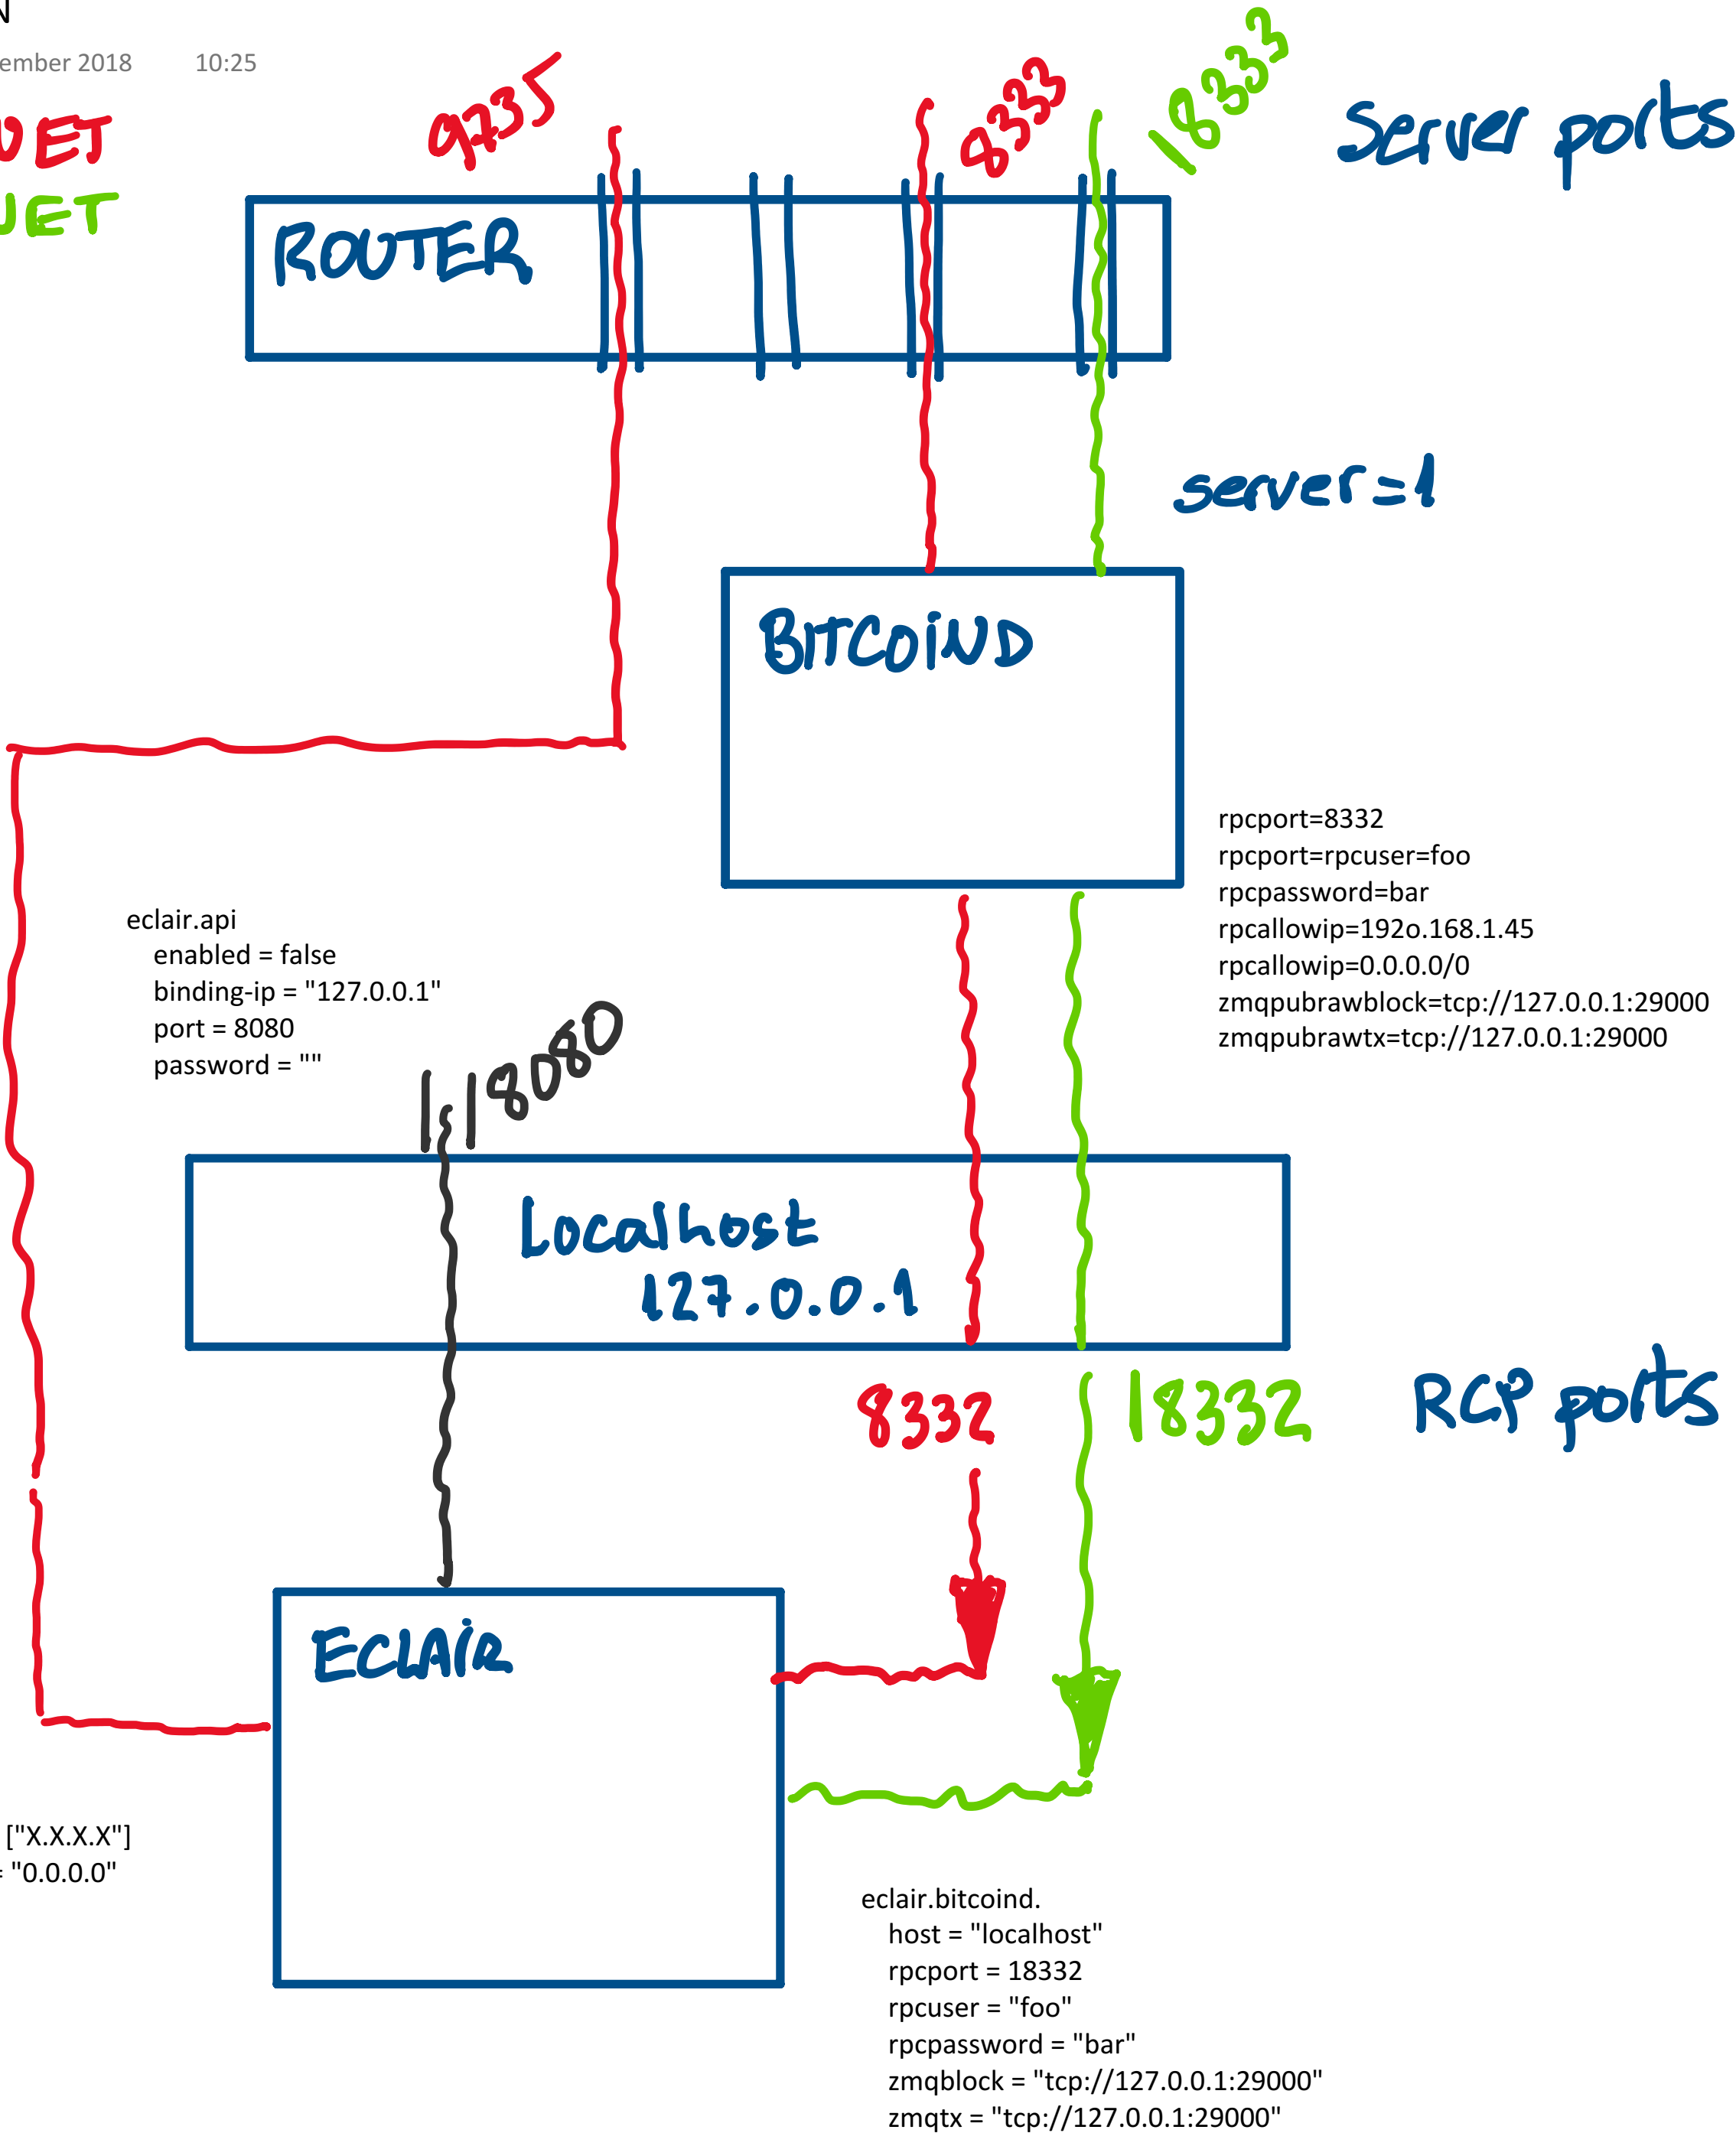 ember 2018 10:25
9735
8333
18333
Server ports
ET
NET
ROUTER
server=1
BITCOIND
rpcport=8332
rpcport=rpcuser=foo
rpcpassword=bar
rpcallowip=192o.168.1.45
rpcallowip=0.0.0.0/0
zmqpubrawblock=tcp://127.0.0.1:29000
zmqpubrawtx=tcp://127.0.0.1:29000
eclair.api
enabled = false
binding-ip = "127.0.0.1"
port = 8080
password = ""
8080
Localhost
127.0.0.1
8332
18332
RCP ports
ECLAIR
["X.X.X.X"]
= "0.0.0.0"
eclair.bitcoind.
host = "localhost"
rpcport = 18332
rpcuser = "foo"
rpcpassword = "bar"
zmqblock = "tcp://127.0.0.1:29000"
zmqtx = "tcp://127.0.0.1:29000"